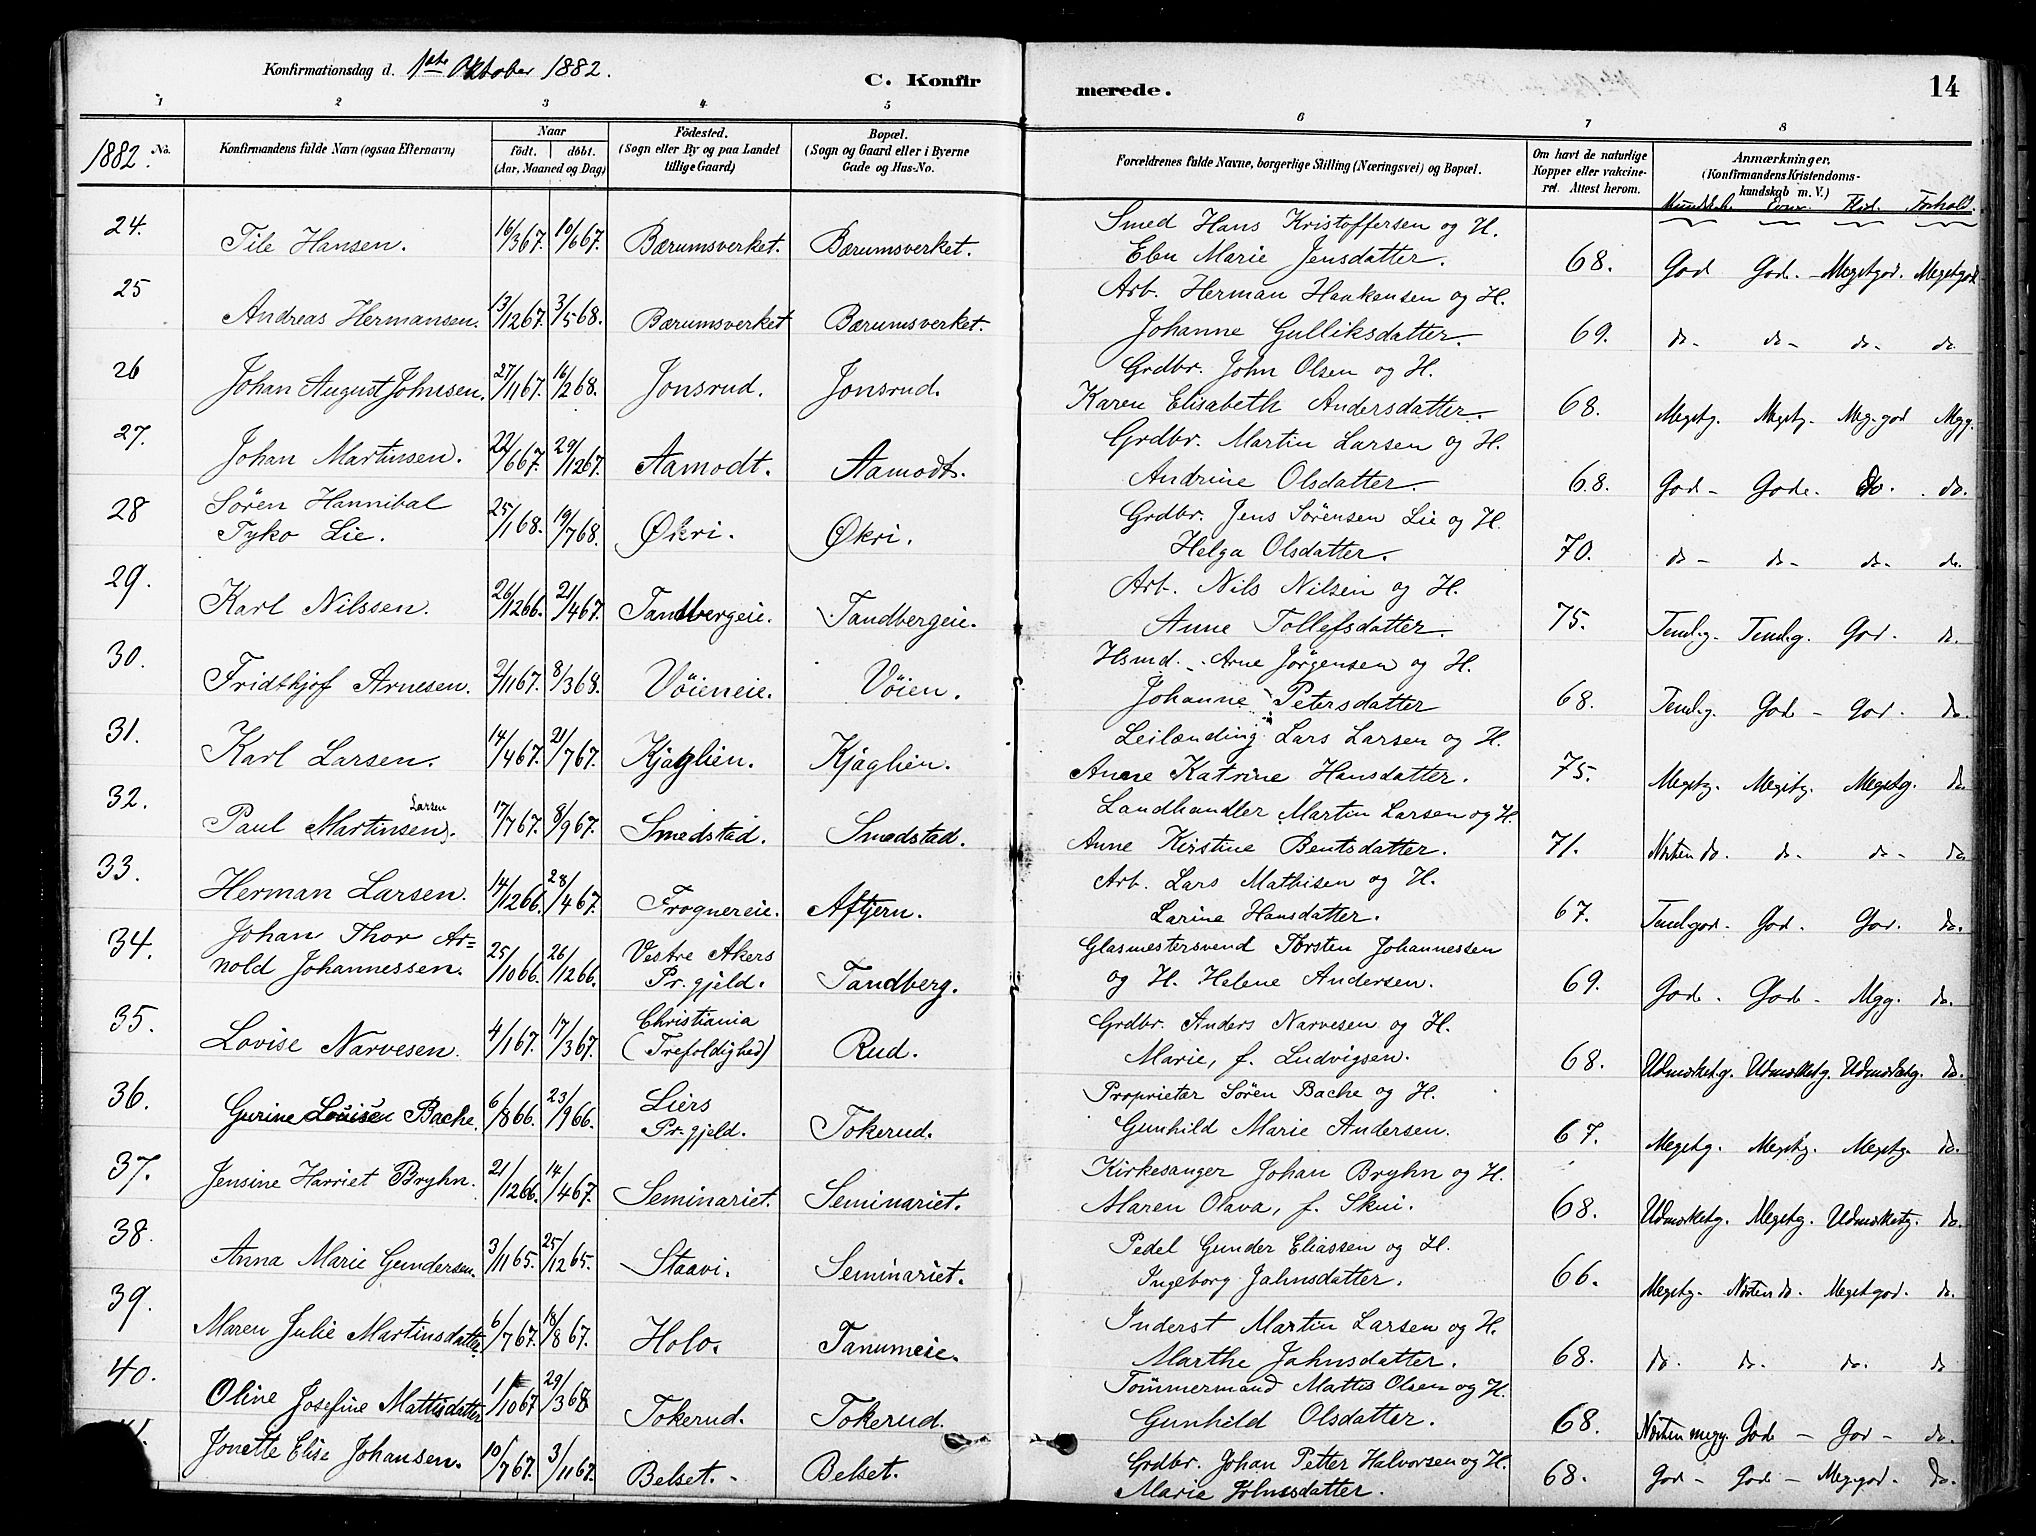 Konfirmationsdag d. 1ste Oktober 1882.
C. Konfirmerede.
14
1 2 3 4 5 6 7 8
1882. No.
Konfirmandens fulde Navn (ogsaa Efternavn)
Naar født. døbt. (Aar, Maaned og Dag)
Födested. (Sogn eller By og paa Landet tillige Gaard)
Bopæl. (Sogn og Gaard eller i Byerne Gade og Hus-No.
Forældrenes fulde Navne, borgerlige Stilling (Næringsvei) og Bopæl.
Om havt de naturlige Kopper eller vakcineret. Attest herom.
Anmærkninger. (Konfirmandens Kristendomskundskab m. V.)
Kundsk. Evner. Flid. Forhold.
24. Tile Hansen. 16/3 67. 10/6 67. Bærumsverket. Bærumsverket. Smed Hans Kristoffersen og H.
Ebn Marie Jensdatter. 68. God God. Megetgod. Megetgod.
25 Andreas Hermansen. 13/12 67. 3/5 68. Bærumsverket Bærumsverket. Arb. Herman Haakensen og H.
Johanne Gulliksdatter. 69. do- do- do- do
26 Johan August Johnsen. 27/11 67. 16/2 68. Jonsrud. Jonsrud. Grdbr. John Olsen og H.
Karen Elisabeth Andersdatter. 68. Megetg. Megetg. Meg.god Mgg.
27. Johan Martinsen. 22/6 67. 29/12 67. Aamodt. Aamodt. Grdbr. Martin Larsen og H.
Andrine Olsdatter. 68. God- Gode. do. do.
28 Søren Hannibal
Tyko Lie. 25/1 68. 19/7 68. Økri. Økri. Grdbr. Jens Sørensen Lie og H.
Helga Olsdatter. 70. do- do- do- do.
29. Karl Nilssen. 26/12 66. 21/4 67. Tandbergeie. Tandbergeie. Arb. Nils Nilsen og H.
Anne Tollefsdatter. 75. Teml.g. Teml.g. God. do.
30. Fridthjof Arnesen. 2/11 67. 8/3 68. Vøieneie. Vøien. Hsmd. Arne Jørgensen og H.
Johanne Petersdatter 68. Teml.g. God- god. do.
31. Karl Larsen. 14/4 67. 21/7 67. Kjaglien. Kjaglien. Leilænding Lars Larsen og H.
Anne Katrine Hansdatter. 75. Megetg. Megetg. Megetg. do
32. Paul Martinsen Larsen. 17/7 67. 8/9 67. Smedstad. Smedstad. Landhandler Martin Larsen og H.
Anne Kirstine Bentsdatter. 71. Næsten do. do. do- do
33. Herman Larsen. 14/12 66. 28/4 67. Frognereie. Aftjern. Arb. Lars Mathisen og H.
Larine Hansdatter. 67. Teml.god. God. God. do.
34. Johan Thor Ar=
nold Johannessen. 25/10 66. 26/12 66. Vestre Akers
Pr.gjeld. Tandberg. Glasmestersvend Torsten Johannessen
og H. Helene Andersen. 69. God. God- Mgg. do.
35. Lovise Narvesen. 4/1 67. 17/3 67. Christiania
(Trefoldighed) Rud. Grdbr. Anders Narvesen og H.
Marie, f. Ludvigsen. 68. Udmærketg. Udmærketg. Udmærketg. do.
36. Gurine Louise Bache. 6/8 66. 23/9 66. Liers
Pr.gjeld. Tokerud. Proprietær Søren Bache og H.
Gunhild Marie Andersen. 67. Megetg. Megetg. Megetg. do.
37. Jensine Harriet Bryhn. 21/12 66. 14/4 67. Seminariet. Seminariet. Kirkesanger Johan Bryhn og H.
Maren Olava, f. Skui. 68. Udmærketg. Megetg. Udmærketg. do.
38. Anna Marie Gundersen. 3/11 65. 25/12 65. Staavi. Seminariet. Pedel Gunder Eliassen og H.
Ingeborg Jahnsdatter. 66. Megetg. Næsten do. Megetgod. do.
39. Maren Julie Martinsdatter. 6/7 67. 18/8 67. Holo. Tanumeie. Inderst Martin Larsen og H.
Marthe Jahnsdatter. 68. do. do. do. do
40. Oline Josefine Mattisdatter 1/10 67 29/3 68 Tokerud. Tokerud. Tømmermand Mattis Olsen og H.
Gunhild Olsdatter. 68. Næsten megg. God- God- do.
41. Jonette Elise Johansen. 10/7 67. 3/11 67. Belset. Belset. Grdbr. Johan Petter Halvorsen og H.
Marie Johnsdatter. 68. God- God- Meg.god. do.